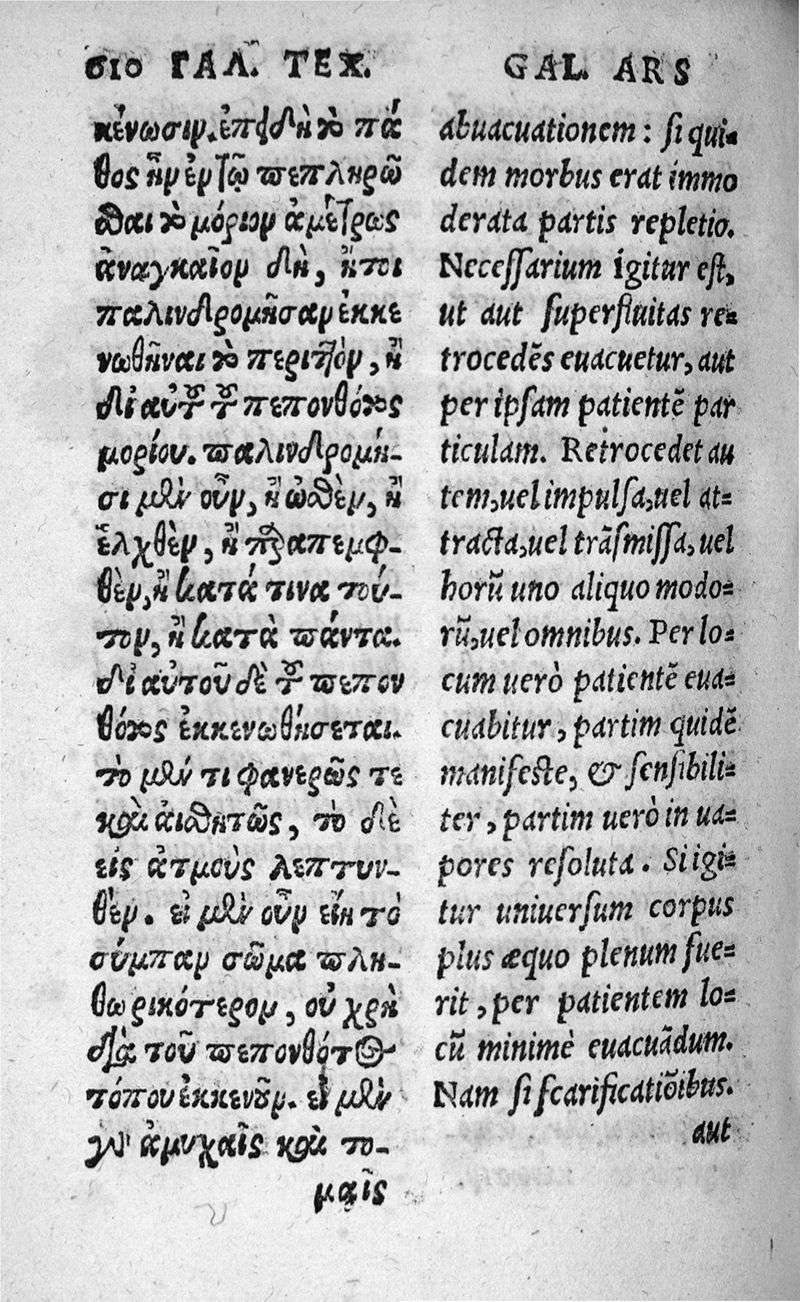 σιο ΓΑΛ. ΤΕΧ.
κένωσιν. ἐπειδὴ τὸ πά
θος ἦν ἐν τῷ πεπληρῶ
σθαι τὸ μόριον ἀμέτρως
ἀναγκαῖον δὴ, ἤτοι
παλινδρομῆσαν ἐκκε
νωθῆναι τὸ περιττὸν, ἢ
δι αὐτοῦ τοῦ πεπονθότος
μορίου. παλινδρομή-
σι μὲν οὖν, ἢ ὠσθὲν, ἢ
ἑλχθὲν, ἢ παραπεμφ-
θὲν, ἢ κατά τινα τού-
των, ἢ κατὰ πάντα.
δι αὐτοῦ δὲ τοῦ πεπον
θότος ἐκκενωθήσεται.
τὸ μὲν τι φανερῶς τε
καὶ αἰσθητῶς, τὸ δὲ
εἰς ἀτμοὺς λεπτυν-
θὲν. εἰ μὲν οὖν εἴη τὸ
σύμπαν σῶμα πλη-
θωρικότερον, οὐ χρὴ
διὰ τοῦ πεπονθότος
τόπου ἐκκενοῦν. εἰ μὲν
γὰρ ἀμυχαῖς καὶ το-
μαῖς
GAL. ARS
abuacuationem : si qui-
dem morbus erat immo
derata partis repletio.
Necessarium igitur est,
ut aut superfluitas re-
trocedẽs euacuetur, aut
per ipsam patientẽ par
ticulam. Retrocedet au
tem, uel impulsa, uel at-
tracta, uel trãsmissa, uel
horũ uno aliquo modo-
rũ, uel omnibus. Per lo-
cum uerò patientẽ eua-
cuabitur, partim quidẽ
manifeste, & sensibili-
ter, partim uerò in ua-
pores resoluta. Si igi-
tur uniuersum corpus
plus æquo plenum fue-
rit, per patientem lo-
cũ minimè euacuãdum.
Nam si scarificatiõibus.
aut